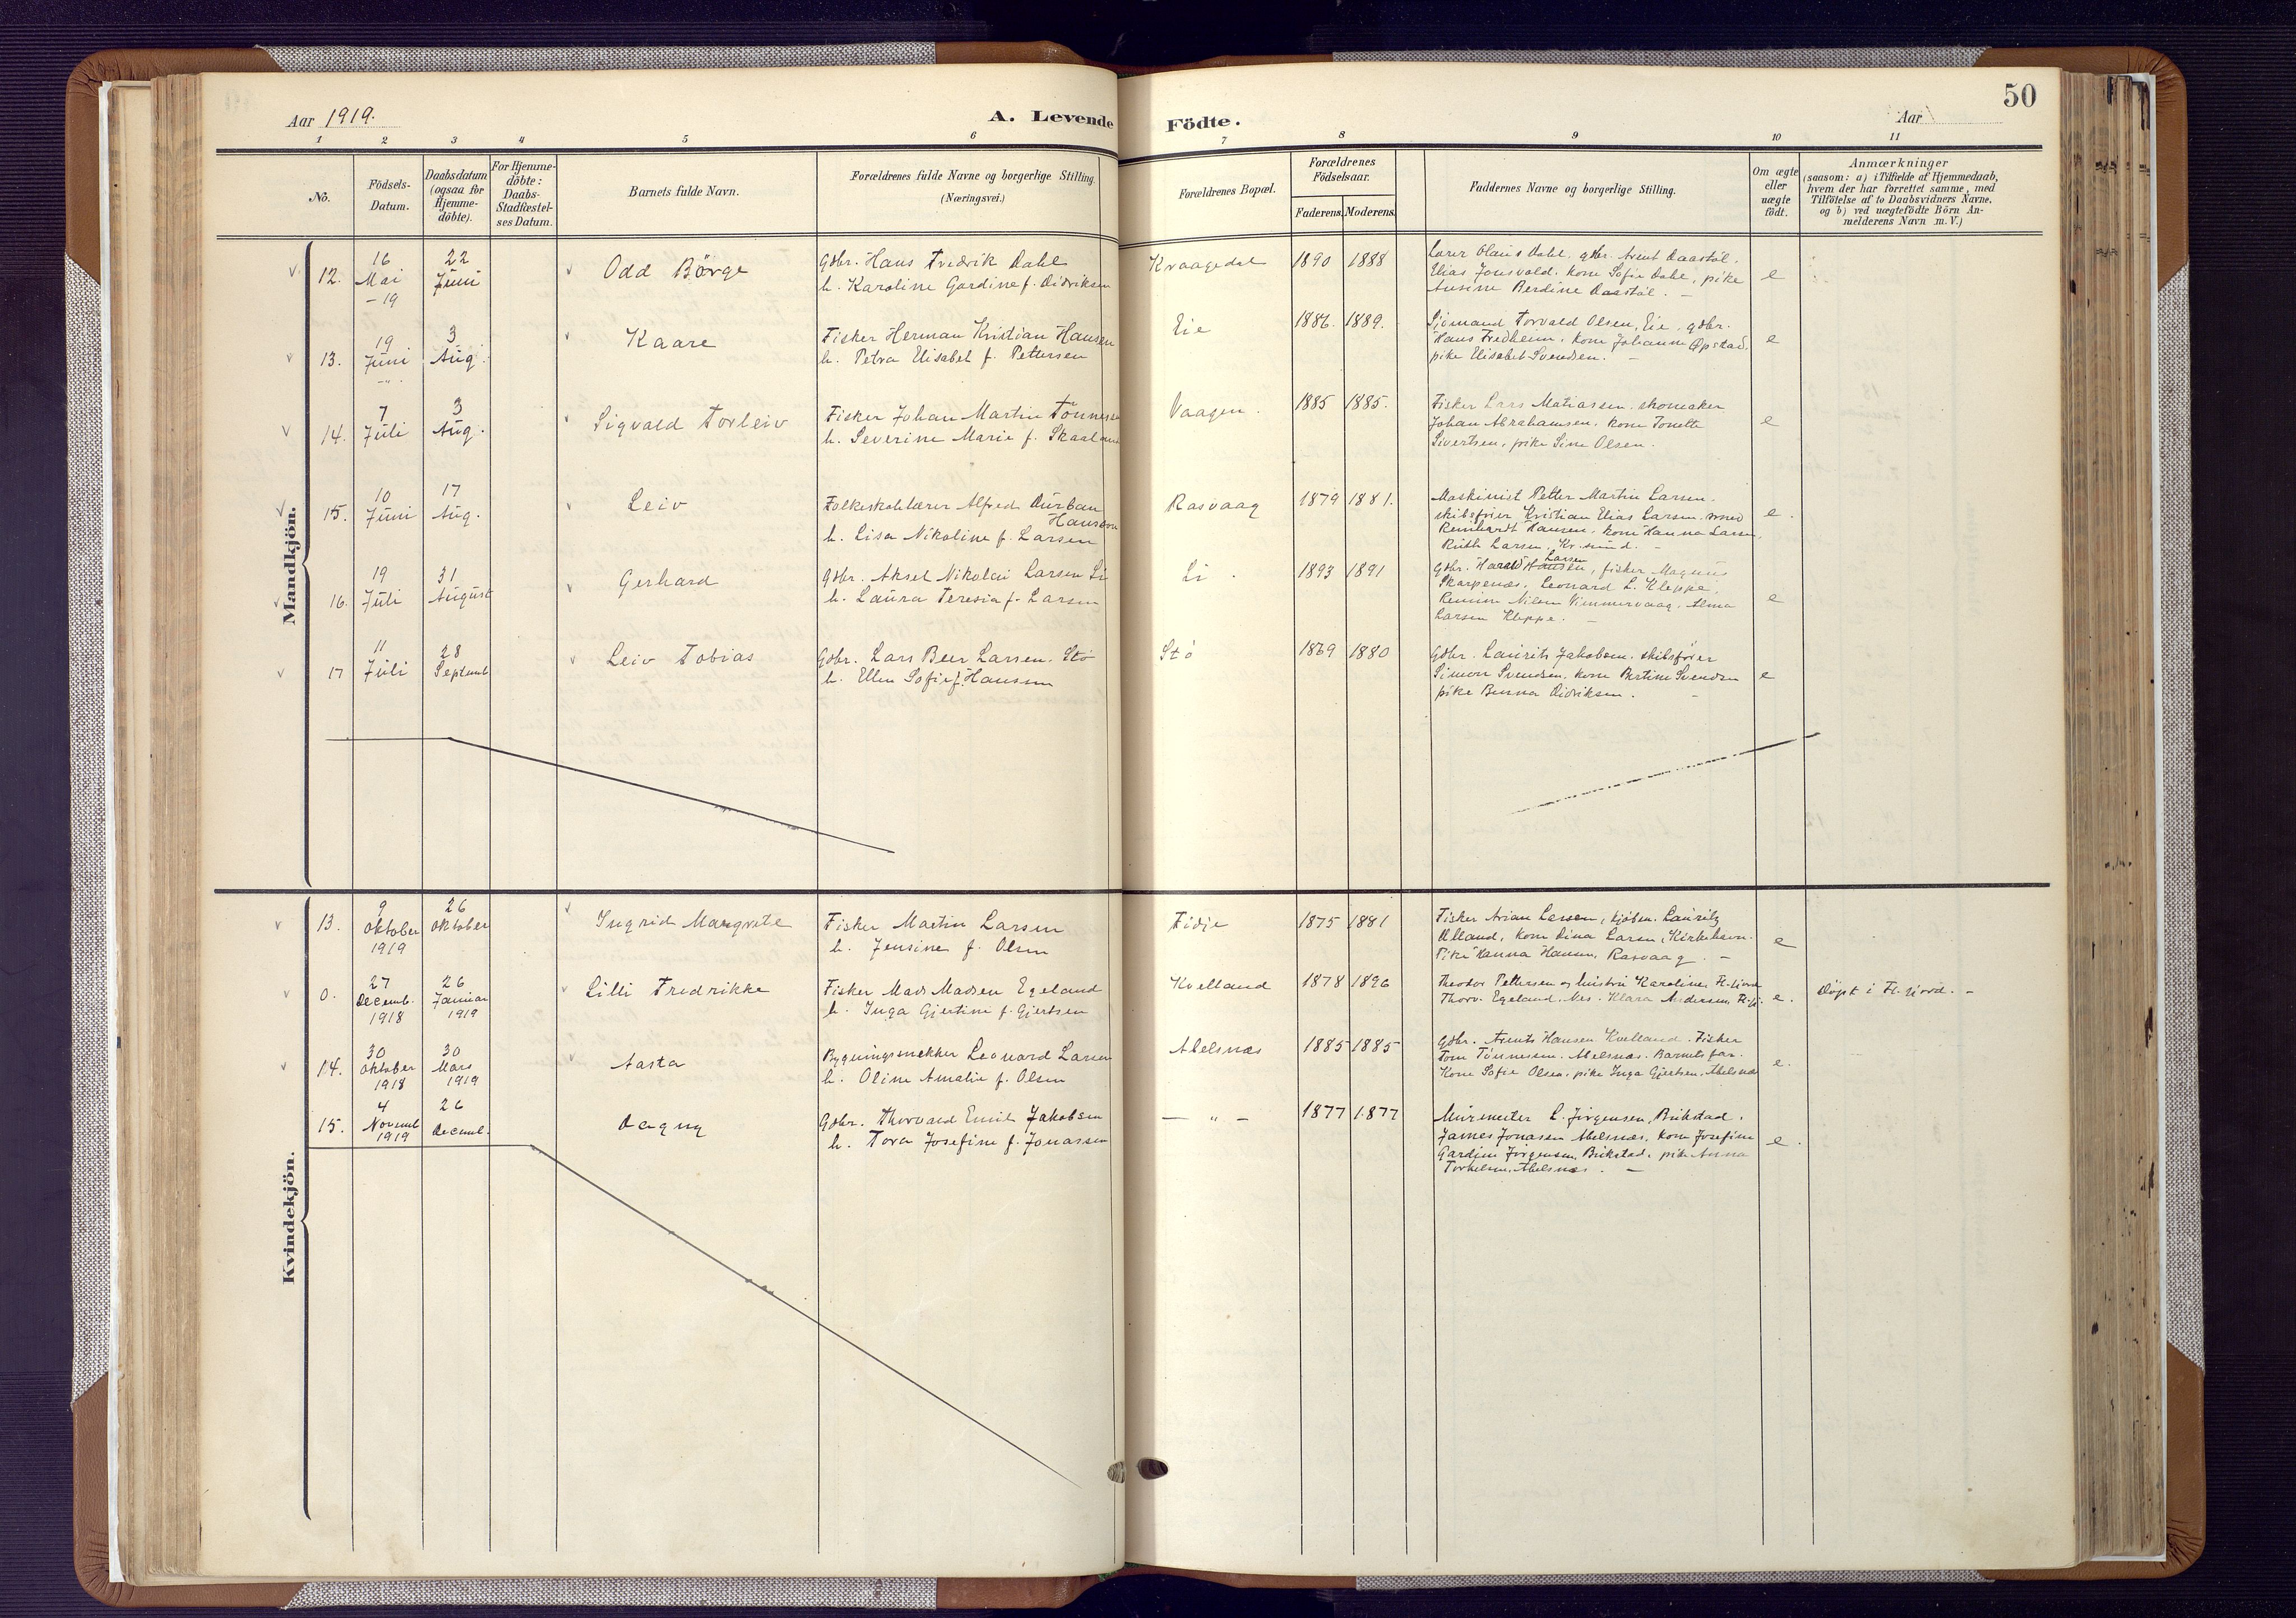 50
Aar 1919.
A. Levende Födte.
Aar
1 2 3 4 5 6 7 8 9 10 11
No.
Födsels-Datum.
Daabsdatum (ogsaa for Hjemme-döbte).
For Hjemme-döbte: Daabs-Stadfæstel-ses Datum.
Barnets fulde Navn.
Forældrenes fulde Navne og borgerlige Stilling. (Næringsvei.)
Forældrenes Bopæl.
Forældrenes Födselsaar.
Faderens. Moderens.
Faddernes Navne og borgerlige Stilling.
Om ægte eller uægte födt.
Anmærkninger
(saasom: a) i Tilfælde af Hjemmedaab, hvem der har forrettet samme, med Tilföielse af to Daabsvidners Navne, og b) ved uægtefödte Börn An-melderens Navn m. V.)
Mandkjön.
12. 16 Mai -19 22 Juni Odd Börge
Gbr. Hans Fredrik Dahl
h. Karoline Gardine f. Didriksen
Kraagedal 1890 1888
Lærer Olaus Dahl, gbr. Arent Daastøl.
Elias Jonsvold. kone Sofie Dahl, pike
Ansine Berdine Daastøl. –
e
13. 19 Juni -"- 3 Aug. Kaare
Fisker Herman Kristian Hansen
h. Petra Elisabet f. Pettersen
Eie 1886. 1889.
Sjømand Torvald Olsen, Eie, gbr.
Hans Fredheim. kone Johanne Opstad.
pike Elisabet Svendsen. –
e
14. 7 Juli 3 Aug. Sigvald Torleiv
Fisker Johan Martin Tönnesse
h. Severine Marie f. Skaaland
Vaagen. 1885 1885.
Fisker Lars Matiassen. skomaker
Johan Abrahamsen. kone Tonette
Sivertsen, pike Sine Olsen.
e
15. 10 Juni 17 Aug. Leiv
Folkeskolelærer Alfred Durban
Hanssen
h. Lisa Nikoline f. Larsen
Rasvaag 1879 1881.
Maskinist Petter Martin Larsen.
skibsfører Kristian Elias Larsen.
Reinhardt Hansen. kone Hanna Larsen,
Ruth Larsen, Kr.sund. –
e.
16. 19 Juli 31 August Gerhard
Gbr. Aksel Nikolai Larsen Li
h. Laura Teresia f. Larsen
Li. 1893 1891
Larsen
Gbr. Harald Hansen, fisker Magnus
Skarpenæs, Leonard L. Kleppe,
Nilsen Vimmervaag. Alma
Larsen Kleppe. –
e
17 11 Juli 28 Septemb Leiv Tobias
Gbr. Lars Beer Larsen. Stö
h. Ellen Sofie f. Hansen
Stö 1869 1880
Gbr. Laurits Jakobsen. skibsfører
Simon Svendsen. kone Bertine Svendsen
pike Benna Didriksen. –
e
Kvindekjön.
13. 9 Oktober 1919 26 Oktober Ingrid Margrete
Fisker Martin Larsen
h. Jensine f. Olsen
Fidje 1875 1881
Fisker Arian Larsen, kjøbm. Lauritz
Ulland, kone Dina Larsen, Kirkehavn.
Pike Hanna Hansen, Rasvaag. –
e
0. 27 Decemb. 1918 26 Januar 1919 Lilli Fredrikke
Fisker Mads Madsen Egeland
h. Inga Gjertine f. Gjertsen
Kvelland 1878 1896
Theodor Pettersen og hustru Karoline, Fl.fjord
Thorv. Egeland. Nes. Klara Andersen, Fl.fj.
e.
Døpt i Fl.fjord. –
14. 30 Oktober 1918 30 Mars 1919 Aasta
Bygningssnekker Leonard Larsen
h. Oline Amalie f. Olsen
Abelsnæs 1885 1885
Gbr. Arents Hansen Kvelland. Fisker
Tom Tönnessen. Abelsnæs. Barnets far.
Kone Sofie Olsen. pike Inga Gjertsen, Abelsnæs
e.
15. 4 Novemb 1919 26 Decemb. Dagny
Gbr. Thorvald Emil Jakobsen
h. Tora Josefine f. Jonassen
— " — 1877 1877
Murmester L. Jörgensen, Birkstad.
James Jonasen Abelsnæs, kone Josefine
Gardine Jörgensen, Birkstad. pike Anna
Torkelsen, Abelsnæs. –
e.